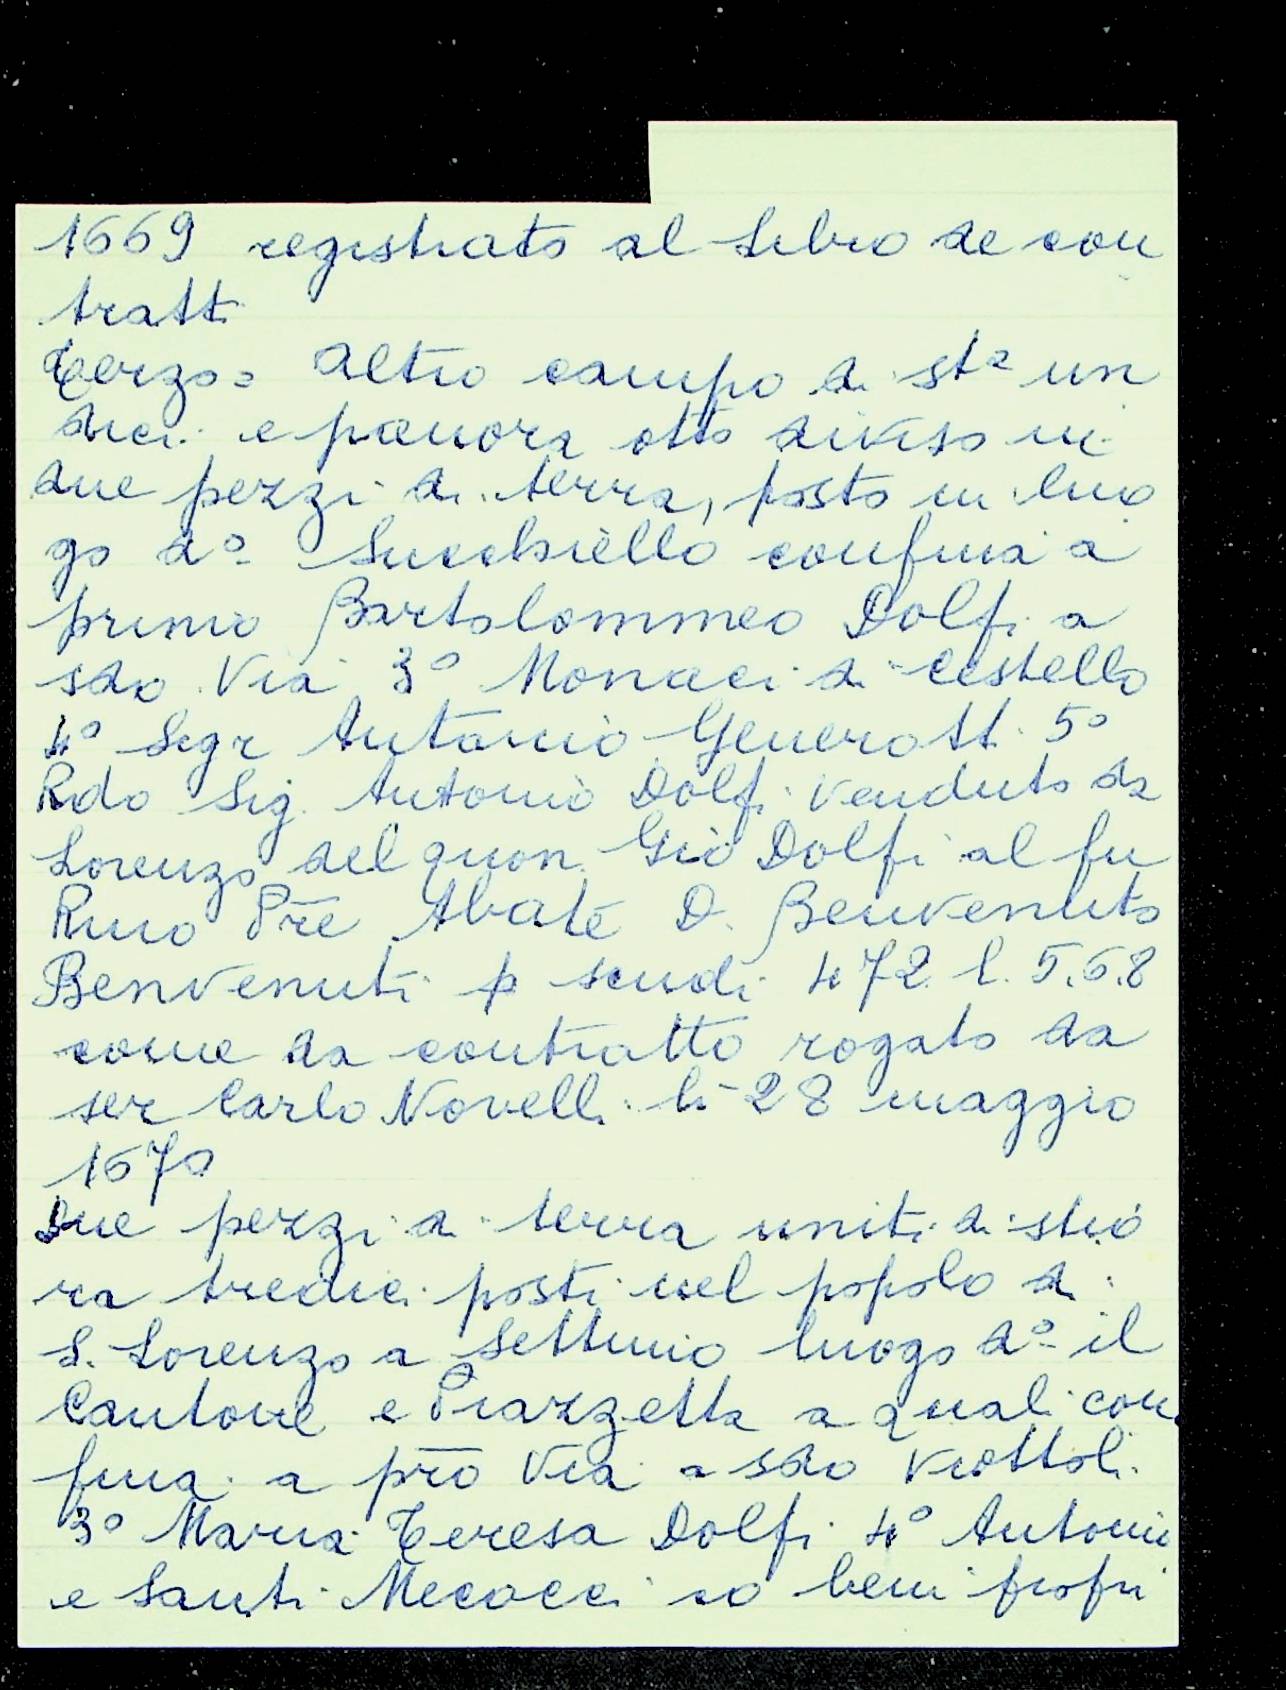 1669 registrato al Libro de con
tratti
Terzo = Altro campo di sta un
dici e panora otto diviso in
due pezzi di terra, posto in luo
go do Succhiello confina a
primo Bartolommeo Dolfi a
sdo Via 3o Monaci di Cestello
4o Segr Antonio Generotti 5o
Rdo Sig. Antonio Dolfi venduto da
Lorenzo del quon. Gio Dolfi al fu
Rmo Pre Abate D. Benvenuto
Benvenuti p scudi 472 l. 5.6.8
come da contratto rogato da
ser Carlo Novelli li 28 maggio
1670
Due pezzi di terra uniti di stio
ra tredici posti nel popolo di
S. Lorenzo a Settimo luogo do il
Cantone e Piazzetta a quali con
fina a pro Via a sdo Viottoli
3o Maria Teresa Dolfi 4o Antonio
e Santi Mecocci so beni propri